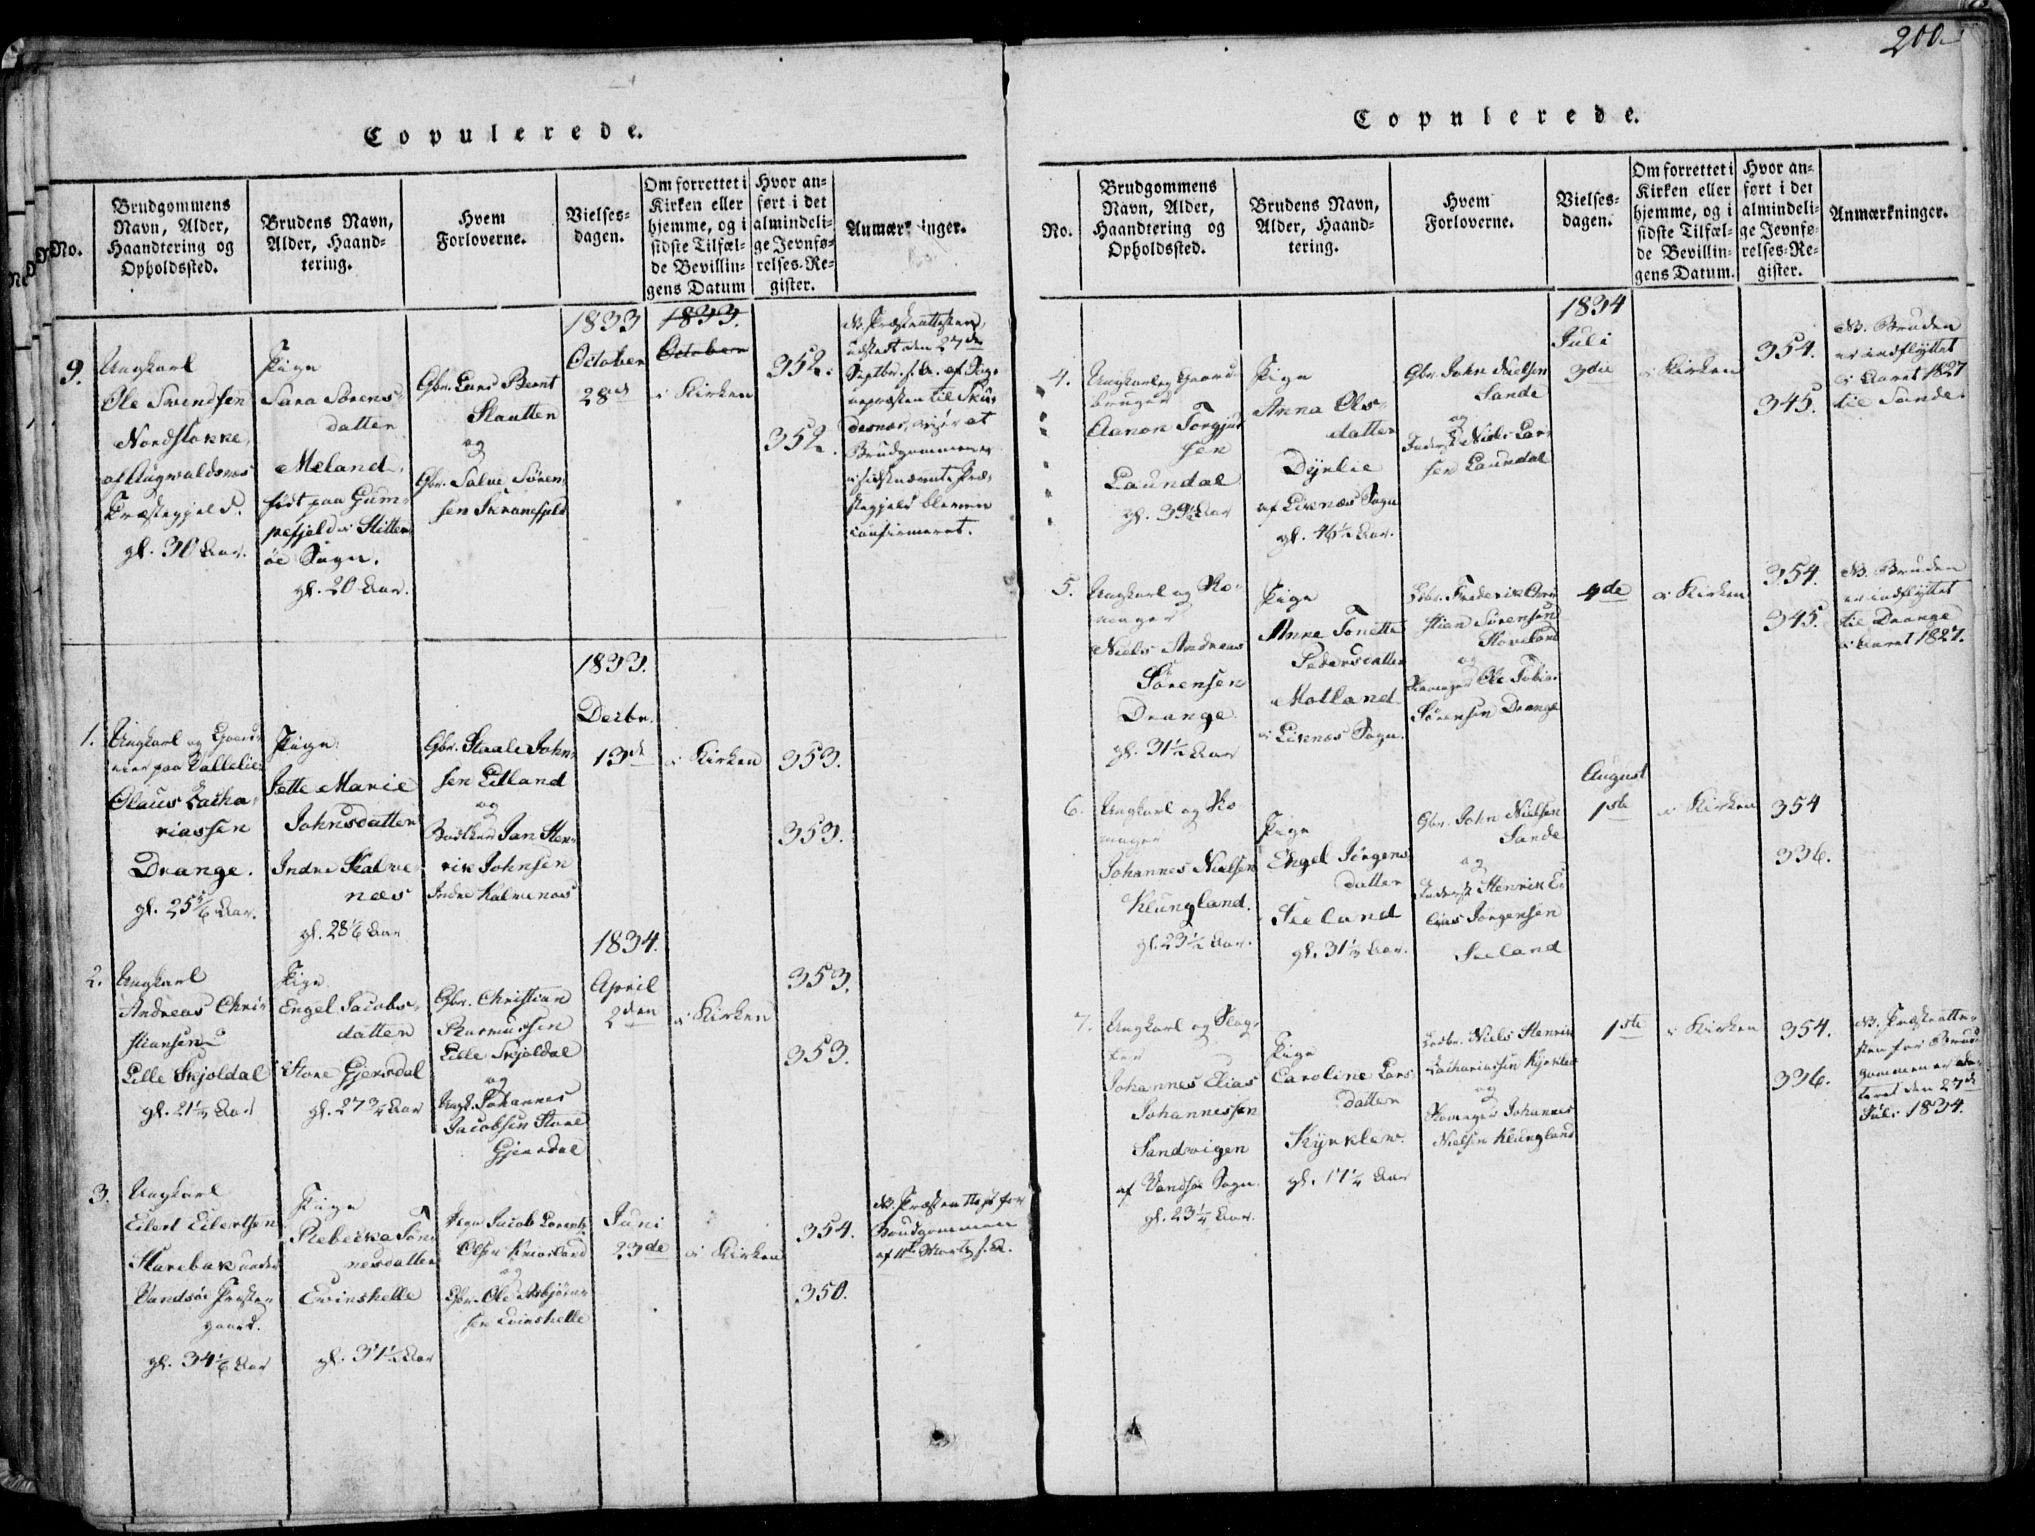 200
Copulerede.
No.
Brudgommens
Navn, Alder,
Haandtering og
Opholdssted.
Brudens Navn,
Alder, Haand-
tering.
Hvem
Forloverne.
Vielses-
dagen.
Om forrettet i
Kirken eller
hjemme, og i
sidste Tilfæl-
de Bevillin-
gens Datum
Hvor an-
ført i det
almindeli-
ge Jevnfø-
relses-Re-
gister.
Anmærkninger.
9.
Ungkarl
Ole Svendsen
Nordstokke,
af Augvaldsnæs
Præstegjeld.
gl. 30 Aar.
Pige
Sara Sørens-
datter
Meland,
født paa Gum-
pefjeld i Hitter-
øe Sogn.
gl. 20 Aar.
Gbr. Lars Bernt
Slautten
og
Gbr. Salve Søren-
sen Skranefjeld
1833
October
28de
1833.
October
i Kirken
352.
352.
NB. Præsteattesten,
udstedt den 27de
Septbr. f. A. af Sog-
nepræsten til Sku-
desnæs, viser at
Brudgommen er
i sidstnævnte Præ-
stegjeld bleven
confirmeret.
1833.
Decbr.
1.
Ungkarl og Gaard-
eier paa Vallelie
Olaus Zacha-
riassen
Drange.
gl. 25 5/6 Aar.
Pige
Jette Marie
Johnsdatter
Indre Kalve-
næs
gl. 28 1/6 Aar
Gbr. Staale John-
sen Eitland
og
Jan Hen-
rik Johnsen
Indre Kalvenæs
13de
i Kirken
353.
353.
1834.
April
2.
Ungkarl
Andreas Chri-
stiansen
Lille Skjoldal
gl. 21 1/4 Aar
Pige
Engel Jacobs-
datter
Store Gjersdal
gl. 27 3/4 Aar
Gbr. Christian
Rasmussen
Lille Skjoldal
og
Ungk. Johannes
Jacobsen Store
Gjersdal
2den
i Kirken
353.
353.
3.
Ungkarl
Eilert Eilertsen
Harebak under
Vandsøe Præste-
gaard.
gl. 34 1/6 Aar
Pige
Rebekka Tøn-
nesdatter
Evinshelle
gl. 31 1/2 Aar
Jacob Lorentz
Olsen
og
Gbr. Ole Asbjørn-
sen Evinshelle
Juni
23de
i Kirken
354.
350.
NB. Præsteattest for
Brudgommen
af 11te Marts f. A.
Copulerede.
No.
Brudgommens
Navn, Alder,
Haandtering og
Opholdssted.
Brudens Navn,
Alder, Haand-
tering.
Hvem
Forloverne.
Vielses-
dagen.
Om forrettet i
Kirken eller
hjemme, og i
sidste Tilfæl-
de Bevillin-
gens Datum.
Hvor an-
ført i det
almindeli-
ge Jevnfø-
relses-Re-
gister.
Anmærkninger.
1834
Juli
4.
Ungkarl og Gaard-
bruger
Aanon Torgjus
sen
Laundal
gl. 39 1/2 Aar
Pige
Anna Ols-
datter
Dyrlie
af Liknæs Sogn
gl. 46 1/2 Aar.
Gbr. John Nielsen
Sande
og
Inderst Niels Lar-
sen Laundal
3die
i Kirken
354.
345.
NB. Bruden
er indflyttet
i Aaret 1827
til Sande.
5.
Ungkarl og Sko-
mager
Niels Andreas
Sørensen
Drange.
gl. 31 1/2 Aar
Pige
Anne Tonette
Pedersdatter
Motland
i Liknæs Sogn.
Gbr. Frederik Chri-
stian Sørensen
og
Skomager Ole Tobias
Sørensen Drange
4de
i Kirken
354.
345.
NB. Bruden
er indflyttet
til Drange
i Aaret 1827.
August
6.
Ungkarl og Sko
mager
Johannes Nielsen
Klungland.
gl. 23 1/2 Aar.
Pige
Engel Jørgens
datter
Seeland
gl. 31 1/3 Aar.
Gbr. John Nielsen
Sande
og
Inderst Henrik E-
lias Jørgensen
Seeland
1ste
i Kirken
354
336.
7.
Ungkarl og Slag-
ter
Johannes Elias
Johannessen
Sandvigen
af Vandsøe Sogn.
gl. 23 1/4 Aar.
Pige
Caroline Lars-
datter
Kyrklev.
gl. 17 1/4 Aar
Niels Henrik
Zachariassen Kyrklev
og
Skomager Johannes
Nielsen Klungland
1ste
i Kirken
354.
336.
NB. Præsteatte-
sten for Brud-
gommen er da-
teret den 27de
Juli 1834.